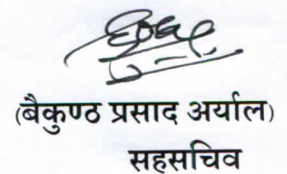 (बैकुण्ठ प्रसाद अर्याल)
सहसचिव